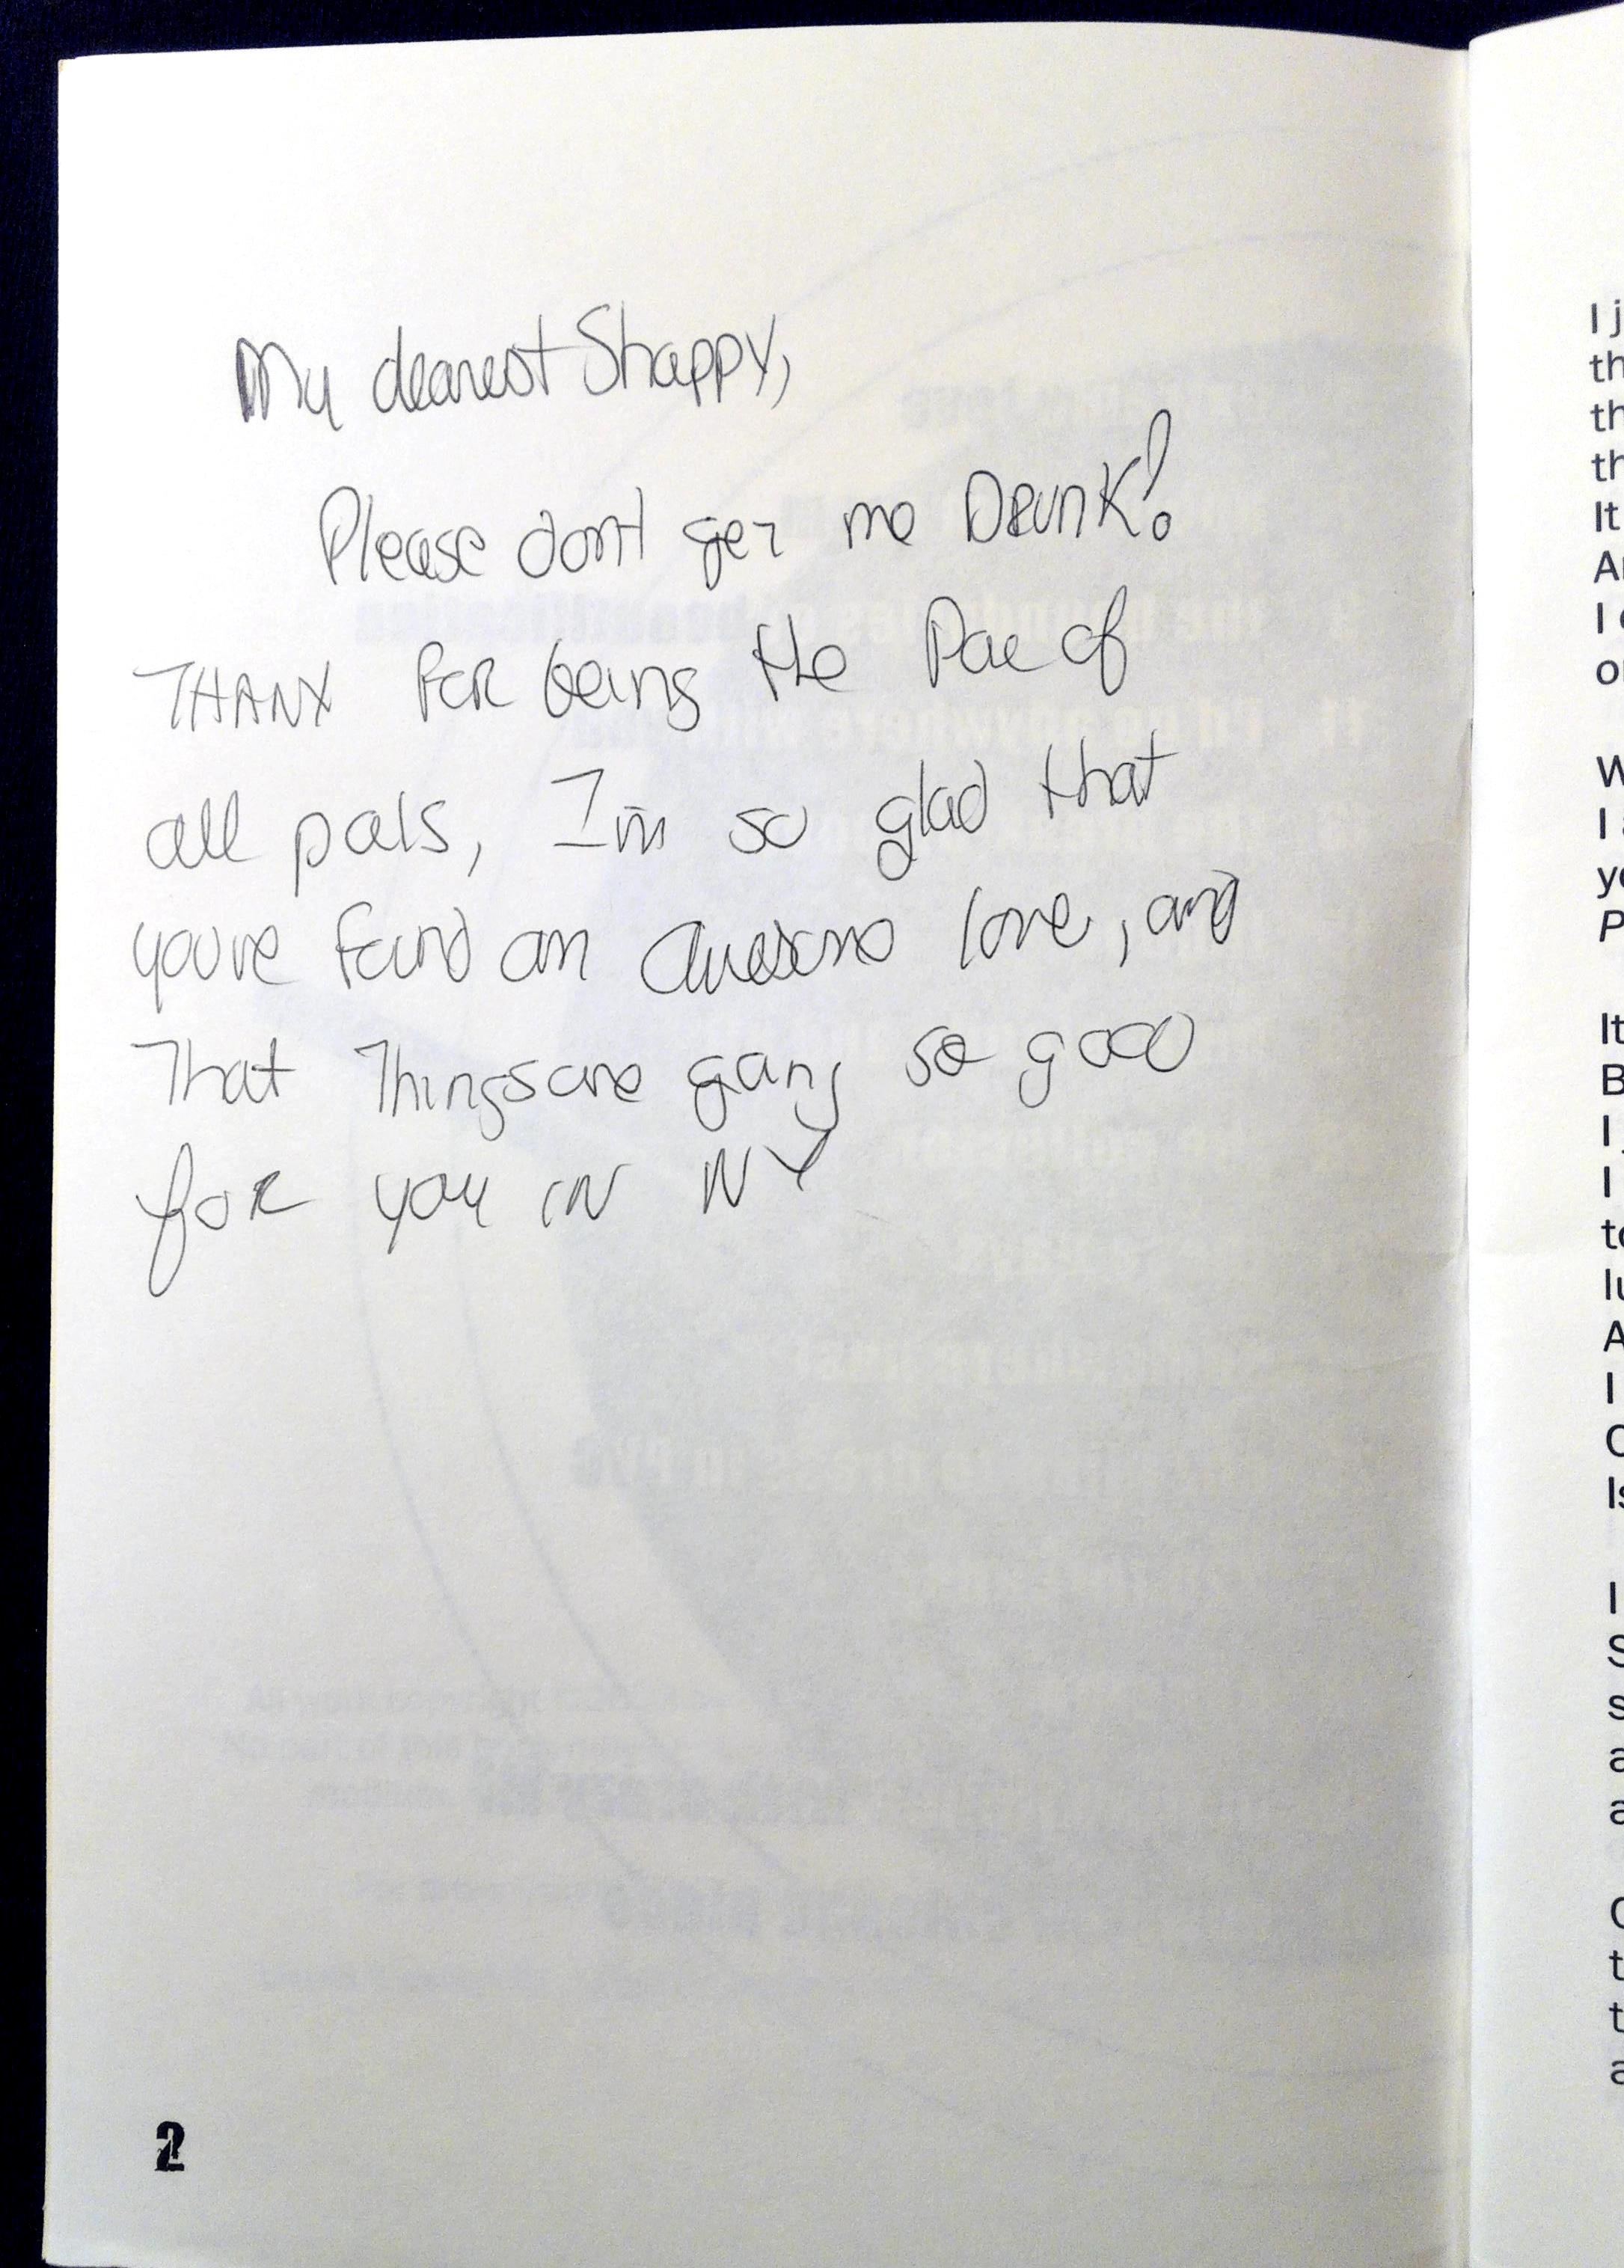 My dearest Shappy,
Please don't get me Drunk!
THANX FOR being the Pal of
all pals, I'm so glad that
you've found an awesome love, and
That Things are going so good
for you in NY
2
I j
th
th
th
It
A
I
o
W
I
y
P
It
B
I
I
t
lu
A
I
C
Is
I
S
s
a
a
C
t
t
a